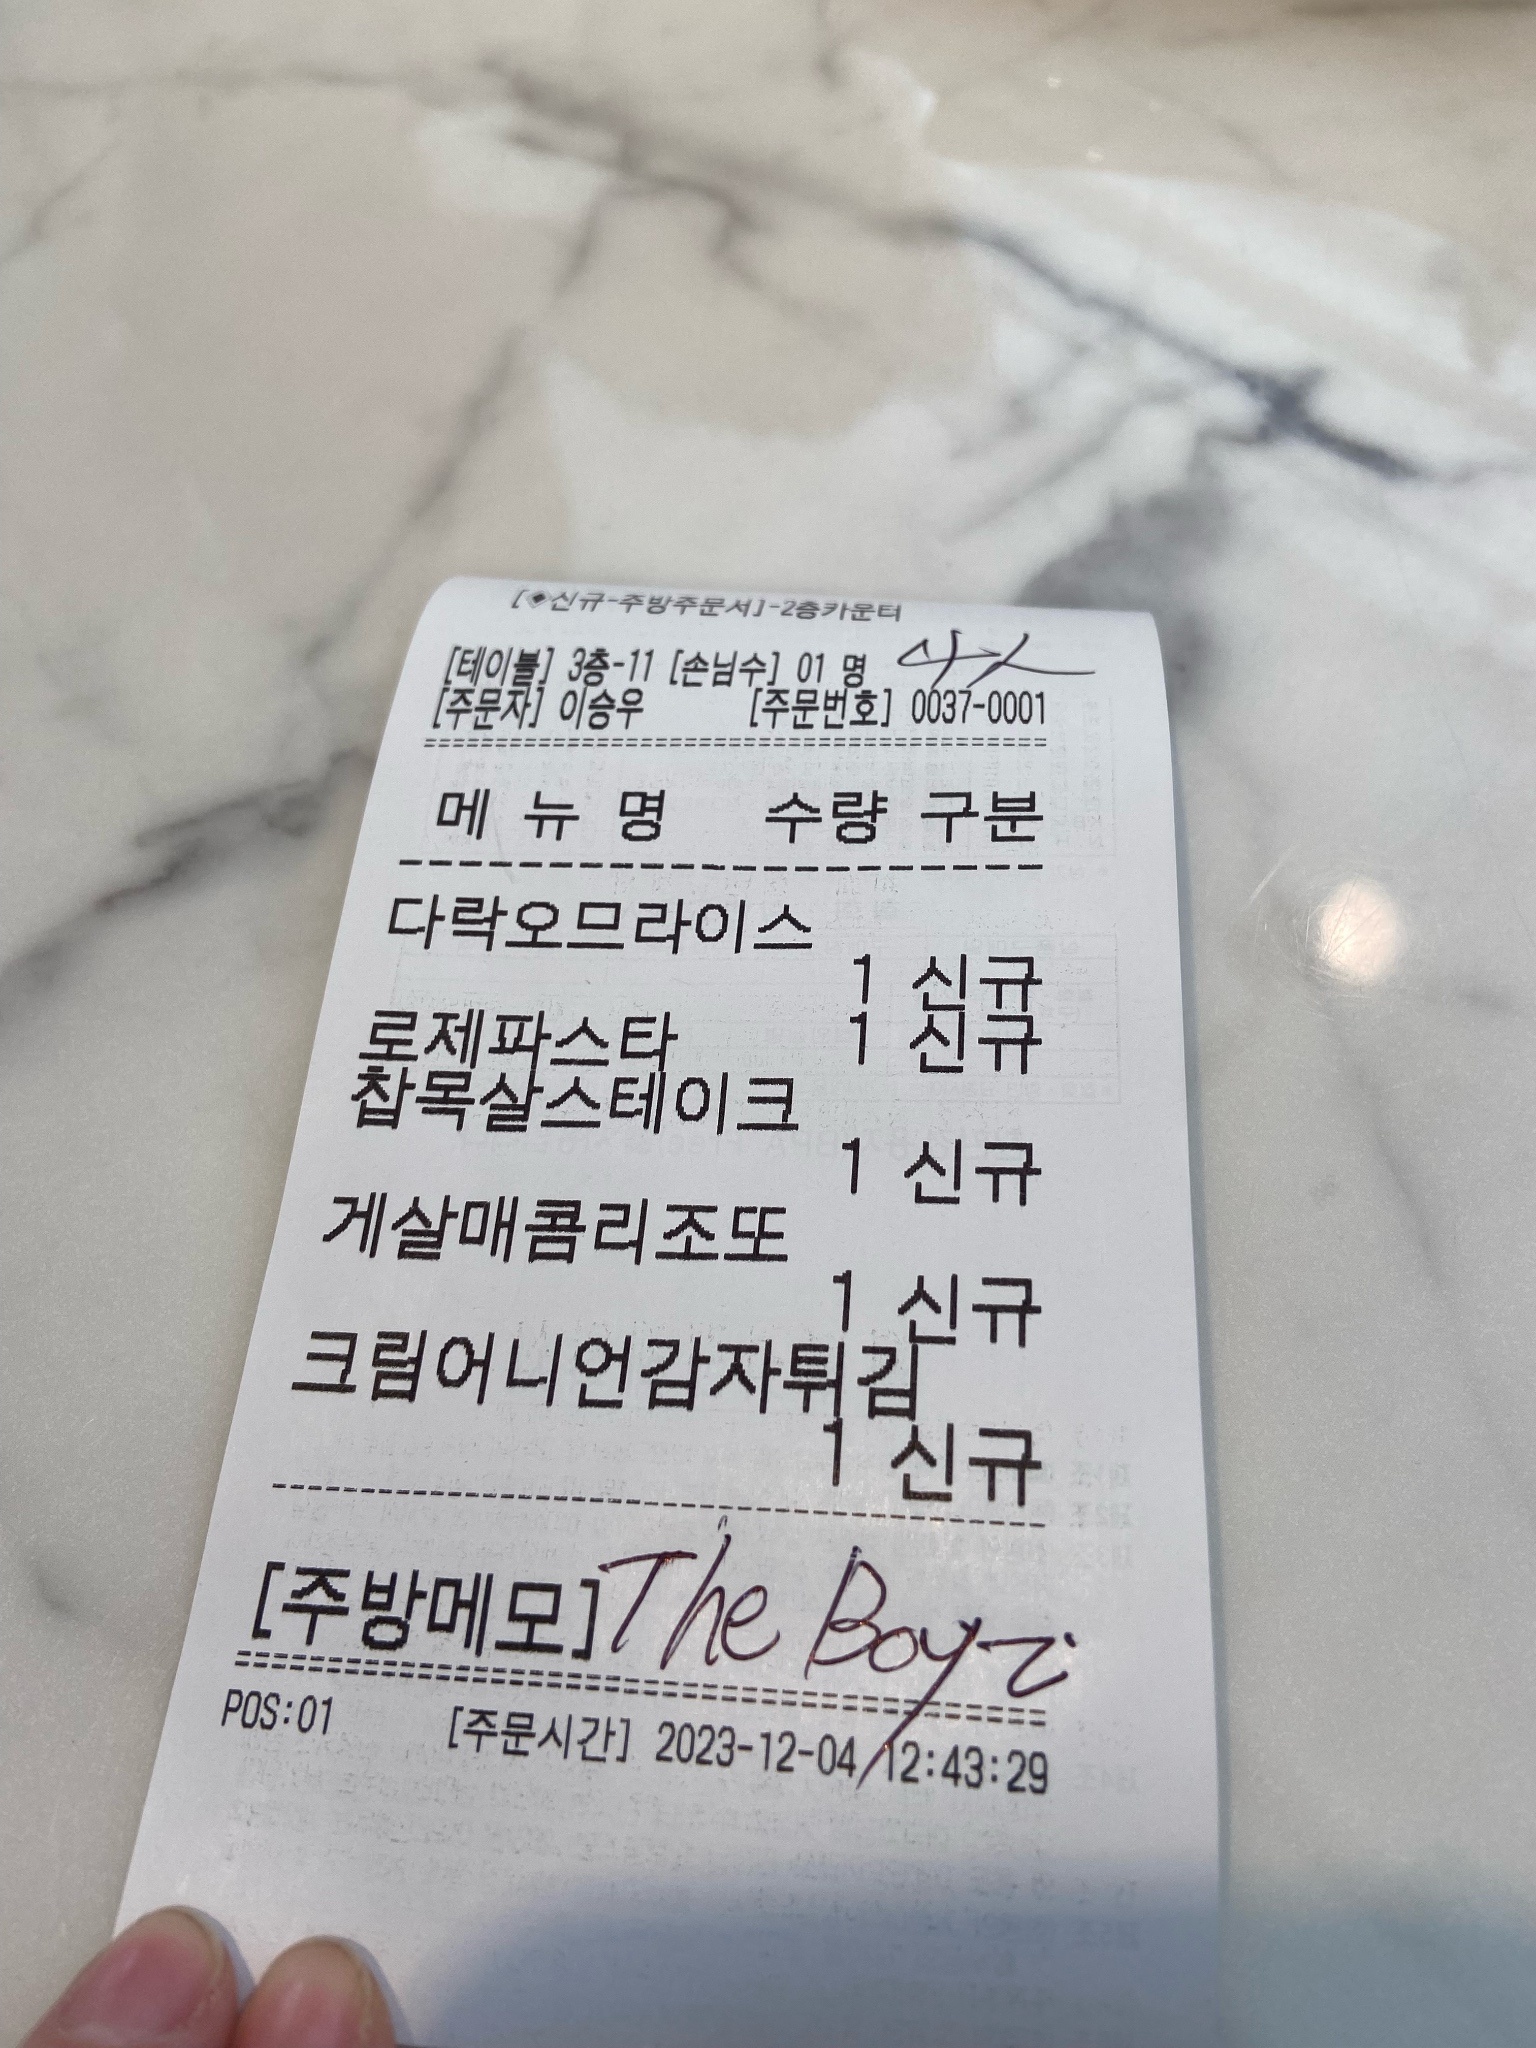 [◈신규-주방주문서]-2층카운터
[테이블] 3층-11 [손님수] 01 명
[주문자] 이승우 [주문번호] 0037-0001
메 뉴 명 수량 구분
다락오므라이스
1 신규
로제파스타 1 신규
찹목살스테이크
1 신규
게살매콤리조또
1 신규
크림어니언감자튀김
1 신규
[주방메모] The Boyz
POS:01 [주문시간] 2023-12-04 12:43:29